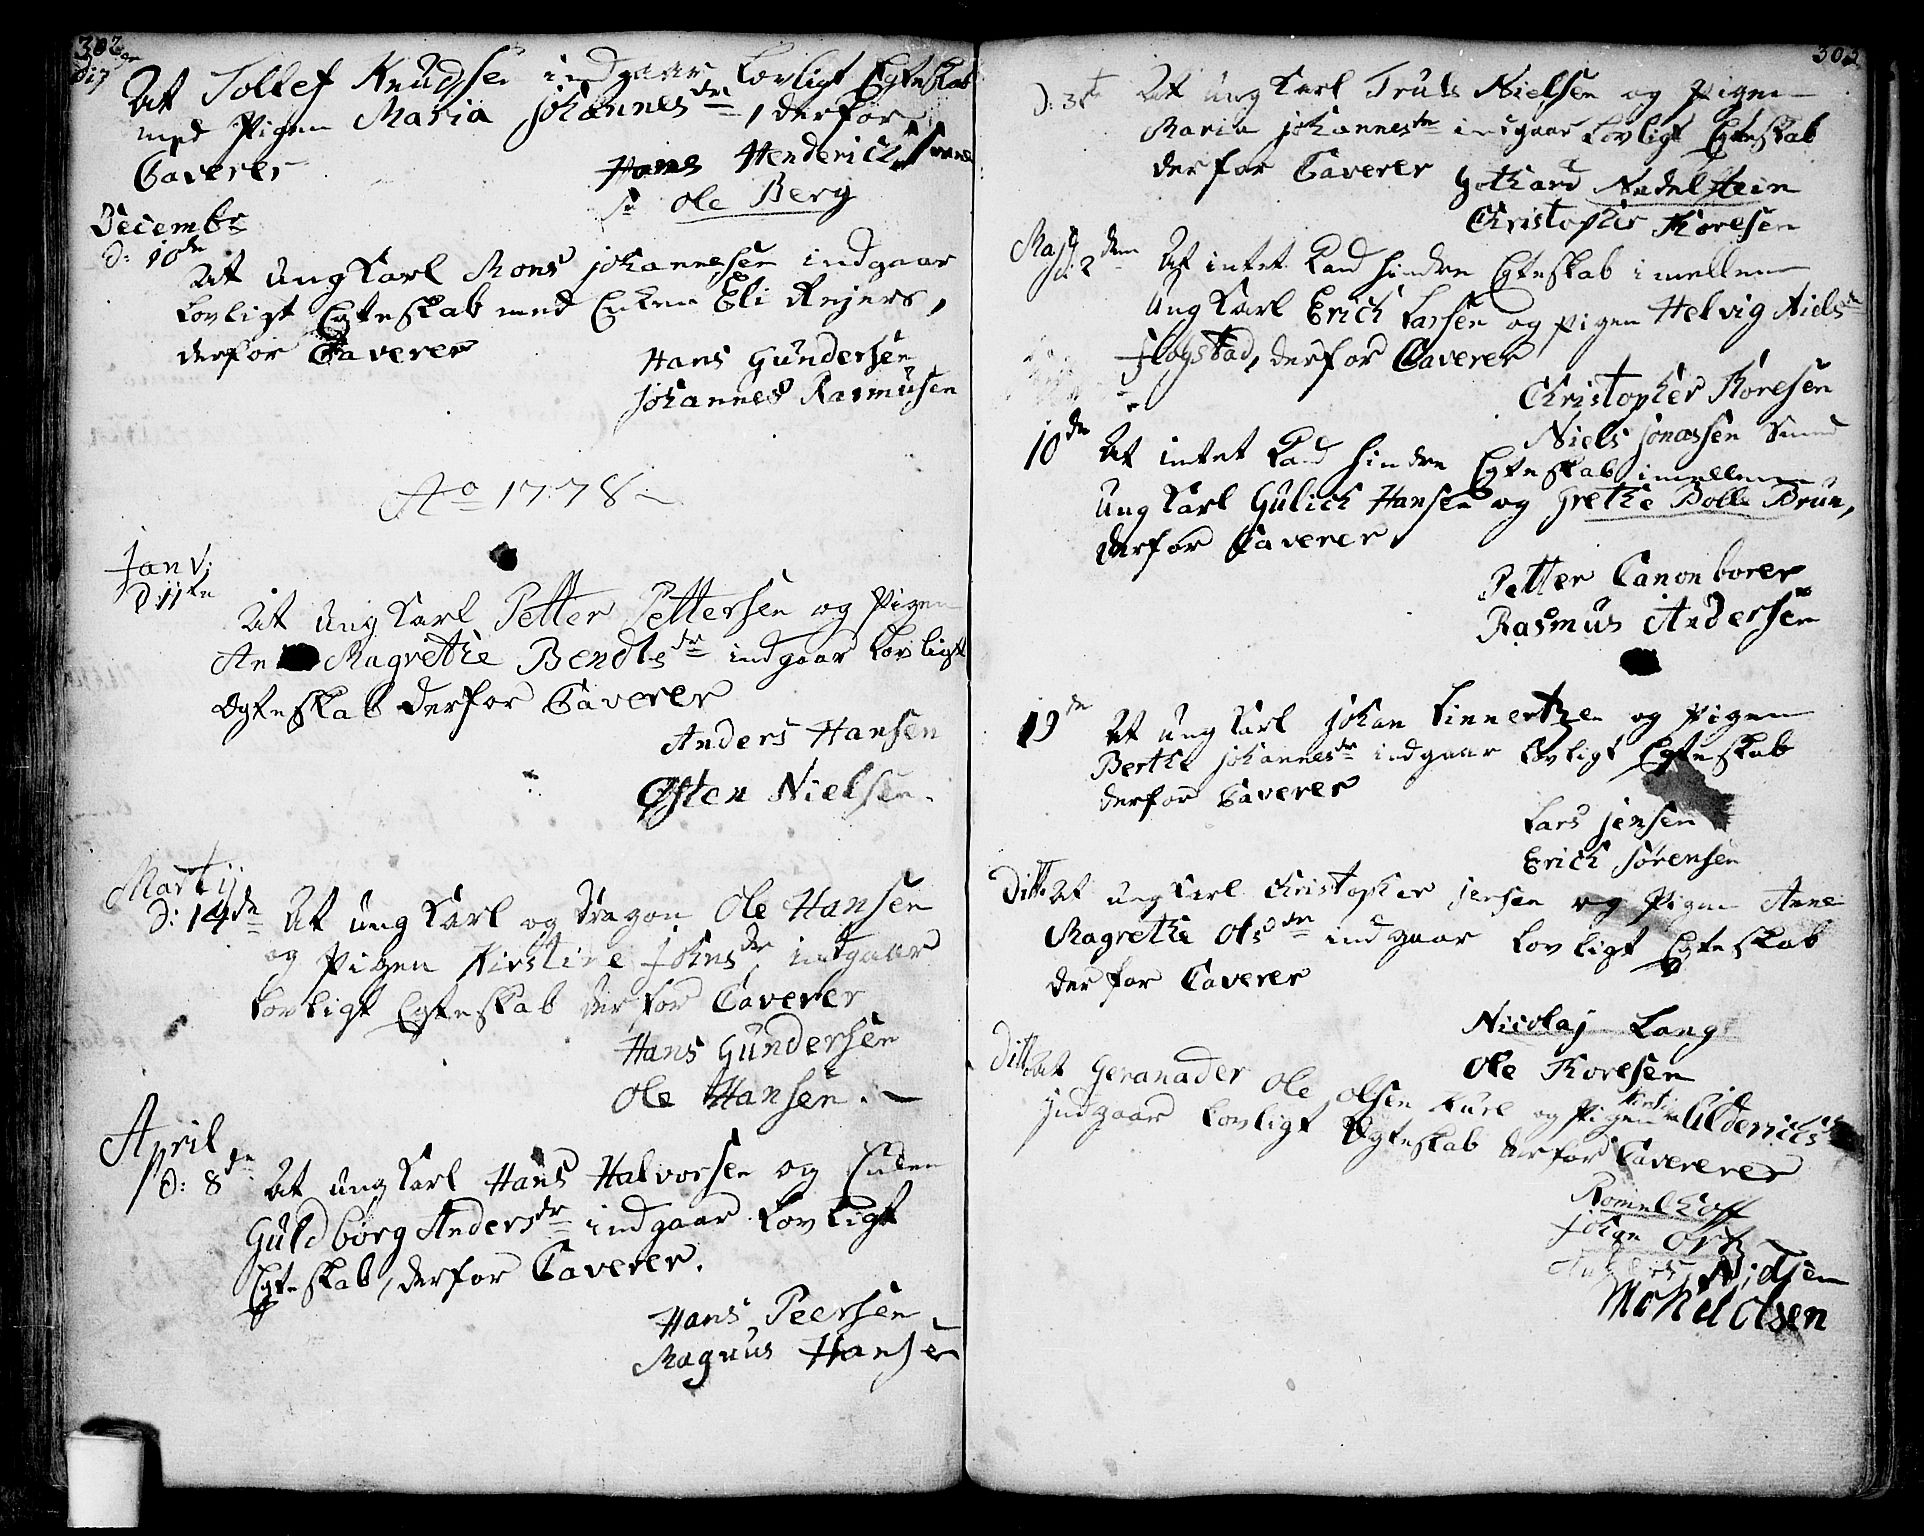 302
d 17
At Tollef Knudsen indgaar Lovligt Egteskab
med Pigen Maria Johannesdr, derfor
Caverer
Hans Henderich
Ole Berg
Decembr
d: 10de
At ung Karl Mons Johannesen indgaar
Lovligt Egteskab med Enken Eli Rejers,
derfor Caverer
Hans Gundersen
Johannes Rasmusen
Ao 1778
Janv:
d 11te
At ung Karl Petter Pettersen og Pigen
An Magrethe Bendtsdr indgaar Lovligt
Egteskab derfor Caverer
Anders Hansen
Østen Nielsen.
Martij
d: 14de At ung Karl og Dragon Ole Hansen
og Pigen Kirstine Johnsdr indgaar
Lovligt Egteskab derfor Caverer
Hans Gundersen
Ole Hansen.
April
d: 8de At ung Karl Hans Halvorsen og Enken
Guldborg Andersdr indgaar Lovligt
Egteskab, derfor Caverer.
Hans Peersen
Magnus Hansen
303
d: 3te At ung Karl Truls Nielsen og Pigen
Maria Johannesdr indgaar Lovligt Egteskab
derfor Caverer
Gothard Nadelstein
Christopher Thoresen
Maj
d: 2den At intet Kand hindre Egteskab imellem
Ung Karl Erich Larsen og Pigen Helvig Niels
Flogstad, derfor Caverer
Christopher Thoresen
Niels Jonassen Smed
10de At intet Kand hindre Egteskab imellem
Ung Karl Gulich Hansen og Grethe Bolle Brun,
derfor Caverer
Petter Canonborer
Rasmus Andersen
19de At ung Karl Johan Linnertzen og Pigen
Berthe Johannesdr indgaar Lovligt Egteskab
derfor Caverer
Lars Jensen
Erich Sørensen
Ditto At ung Karl Christopher Jensen og Pigen Anne
Magrethe Olsdr indgaar Lovligt Egteskab
derfor Caverer
Nicolaj Lang
Ole Thoresen
Ditto At Geranader Ole Olsen og Pigen
Indgaar Lovligt Egteskab derfor Cavererer
Romelhoff
Ortz
Michel Olsen